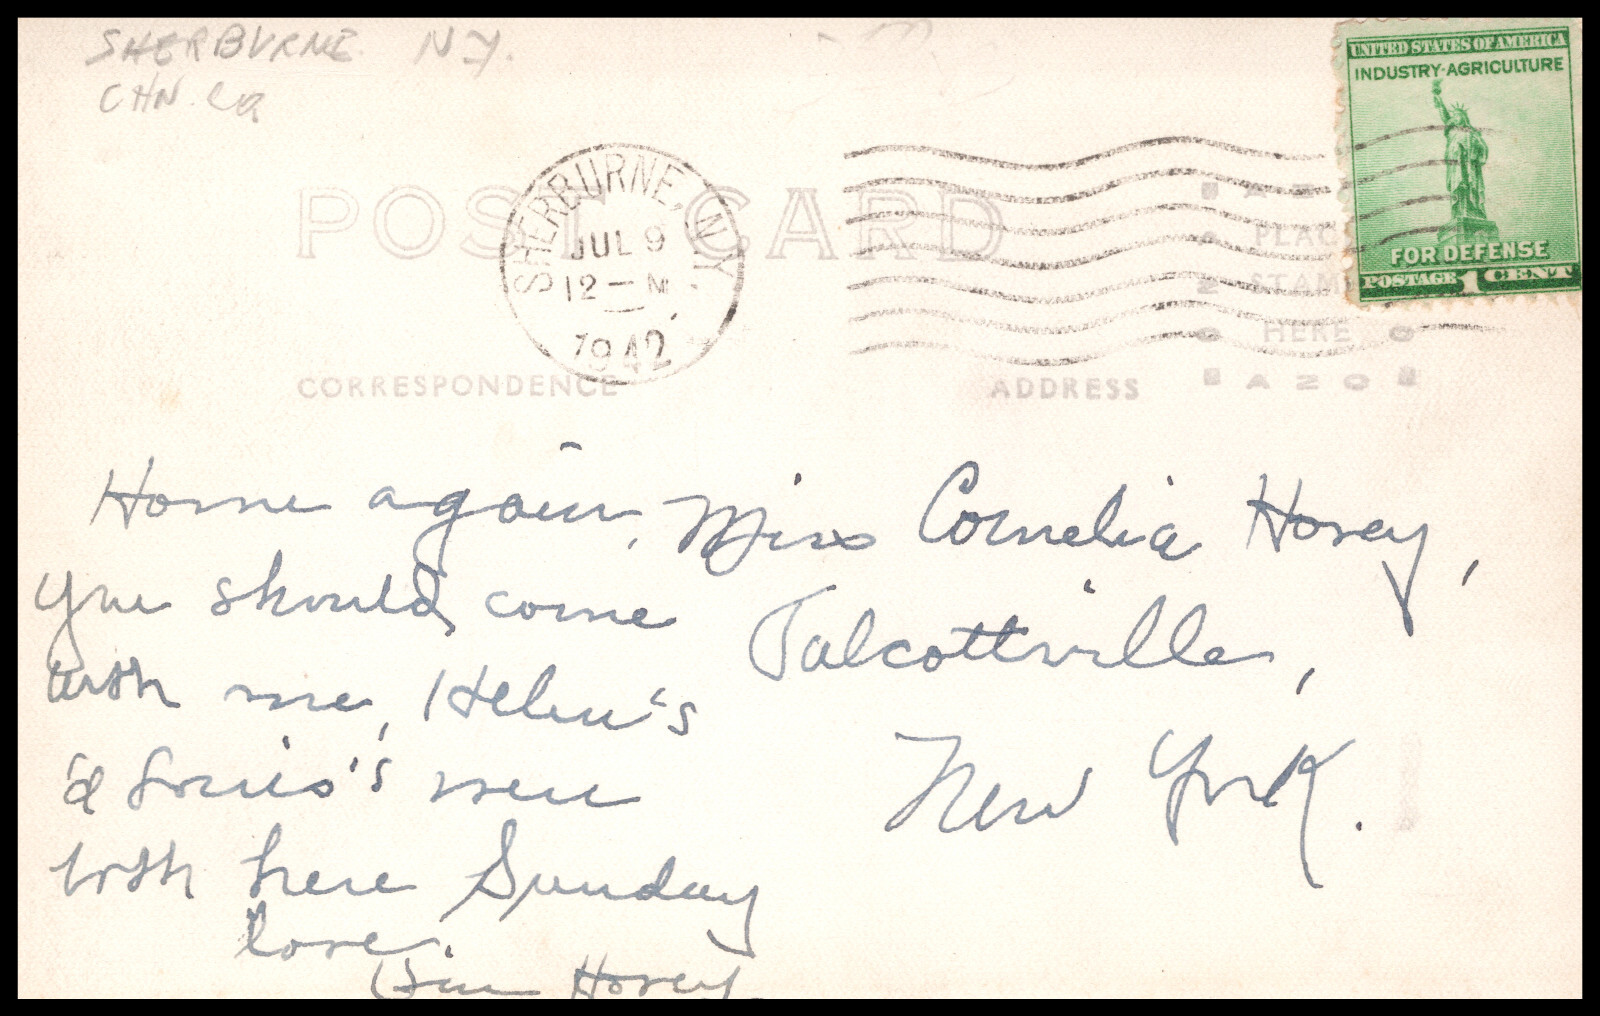 SHERBURNE N.Y.
CHN. Co
POST CARD
SHERBURNE, N.Y.
JUL 9
12 — M
1942
UNITED STATES OF AMERICA
INDUSTRY·AGRICULTURE
FOR DEFENSE
POSTAGE 1 CENT
PLACE
STAMP
HERE
AZO
CORRESPONDENCE
ADDRESS
Home again,
you should come
with me, Helen's
& Louis's were
both here Sunday
love.
Hovey.
Miss Cornelia Hovey,
Talcottville,
New York.